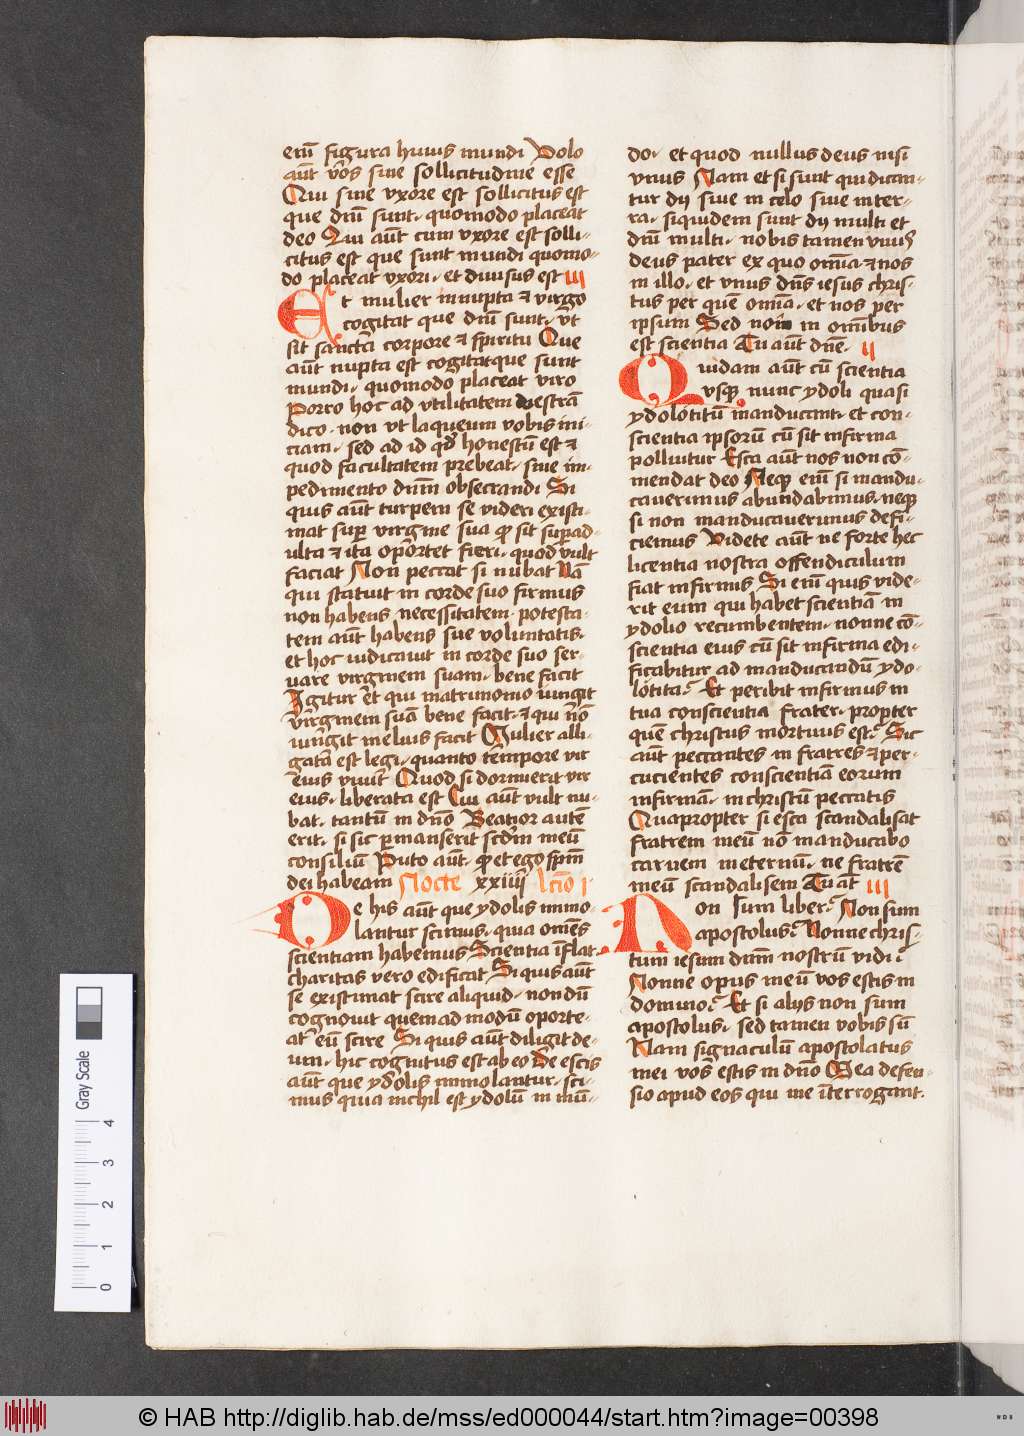 erū figura huius mundi Volo
aūt vōs sine sollicitudine esse
Qui sine vxore est sollicitus est
que dn̄i sunt · quomodo placeat
deo Qui aūt cum vxore est solli-
citus est que sunt mundi quomo-
do placeat vxori · et diuisus est III
Et mulier innupta ⁊ virgo
cogitat que dn̄i sunt · vt
sit sancta corpore ⁊ spiritu Que
aūt nupta est cogitat que sunt
mundi · quomodo placeat viro
Porro hoc ad vtilitatem vestrā
dico · non vt laqueum vobis ini-
ciam · sed ad id qd honestū est ⁊
quod facultatem prebeat · sine im-
pedimento dn̄m obsecrandi Si
quis aūt turpem se videri existi-
mat sup virgine sua ꝙ sit supad-
ulta ⁊ ita oportet fieri · quod vult
faciat Non peccat si nubat Nā
qui statuit in corde suo firmus
non habens necessitatem · potesta-
tem aūt habens sue voluntatis ·
et hoc iudicauit in corde suo ser-
uare virginem suam · bene facit
Igitur et qui matrimonio iungit
virginem suā bene facit · ⁊ qui nō
iungit melius facit Mulier alli-
gata est legi · quanto tempore vir
eius viuit Quod si dormierit vir
eius · liberata est Cui aūt vult nu-
bat · tantū in dn̄o Beatior autē
erit · si sic pmanserit scdm meū
consiliū Puto aūt · ꝙ et ego spm̄
dei habeam Nocte xxiiii Lcīo I
De his aūt que ydolis immo-
lantur scimus · quia om̄es
scientiam habemus Scientia īflat ·
charitas vero edificat Si quis aūt
se existimat scire aliquid · non dū
cognouit quemadmodū oporte-
at eū scire Si quis aūt diligit de-
um · hic cognitus est ab eo De escis
aūt que ydolis immolantur · sci-
mus quia nichil est ydolū in mū-
do · et quod nullus deus nisi
vnus Nam et si sunt qui dican-
tur dij siue in celo siue in ter-
ra · siquidem sunt dij multi et
dn̄i multi · nobis tamen vnus
deus pater ex quo om̄ia · ⁊ nos
in illo · et vnus dn̄s iesus chris-
tus per quē om̄ia · et nos per
ipsum Sed non in om̄ibus
est scientia Tu aūt dn̄e · II
Quidam aūt cū scientia
vsq nunc ydoli quasi
ydolotitū manducant · et con-
scientia ipsorū cū sit infirma
polluitur Esca aūt nos non cō-
mendat deo Neq enī si mandu-
cauerimus abundabimus · neq
si non manducauerimus defi-
ciemus Videte aūt ne forte hec
licentia nostra offendiculum
fiat infirmis Si enī quis vide-
rit eum qui habet scientiā in
ydolio recumbentem · nonne cō-
scientia eius cū sit infirma edi-
ficabitur ad manducandū ydo-
lotita? Et peribit infirmus in
tua conscientia frater · propter
quē christus mortuus est? Sic
aūt peccantes in fratres ⁊ per-
cucientes conscientiā eorum
infirmā · in christū peccatis
Quapropter si esca scandalisat
fratrem meū nō manducabo
carnem in eternū · ne fratrē
meū scandalisem Tu aūt III
Non sum liber? Non sum
apostolus? Nonne chris-
tum iesum dn̄m nostrū vidi?
Nonne opus meū vos estis in
domino? Et si alijs non sum
apostolus · sed tamen vobis sū
Nam signaculū apostolatus
mei vos estis in dn̄o Mea defen-
sio apud eos qui me īterrogant ·
Gray Scale
0 1 2 3 4
© HAB http://diglib.hab.de/mss/ed000044/start.htm?image=00398